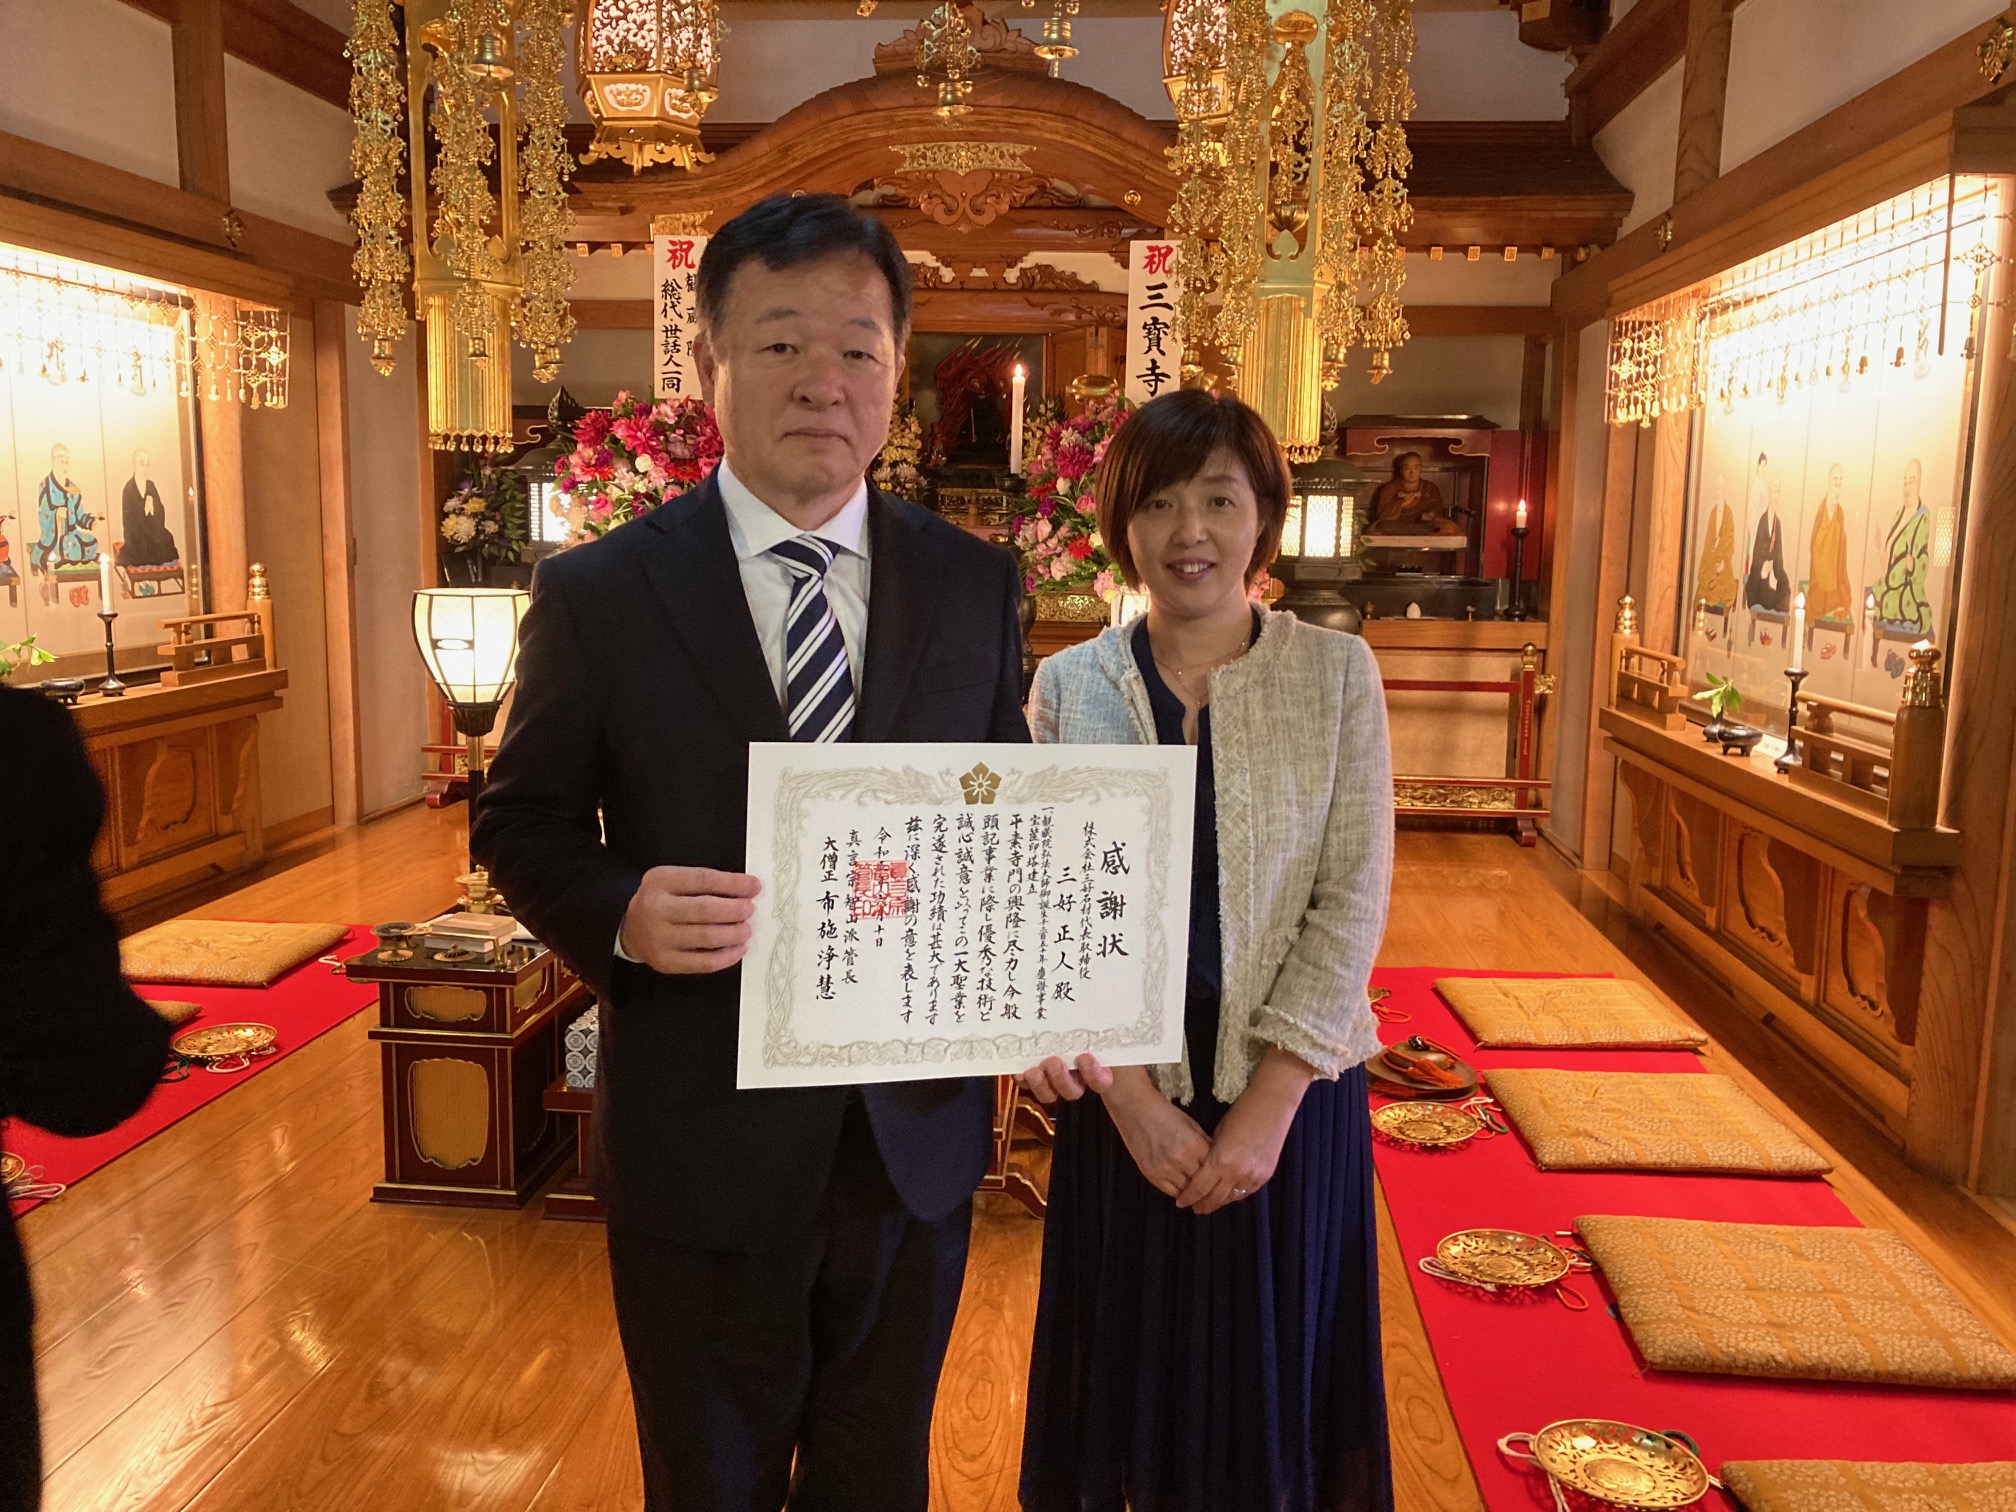 祝
観蔵院
総代・世話人一同
祝
三寳寺
感謝状
株式会社三好石材代表取締役
三好正人殿
一、観蔵院弘法大師御誕生千二百五十年慶讃事業
宝篋印塔建立
平素寺門の興隆に尽力し今般
頭記事業に際し優秀な技術と
誠心誠意を以ってこの一大聖業を
完遂された功績は甚大であります
茲に深く感謝の意を表します
真言宗智山派管長
大僧正 布施浄慧